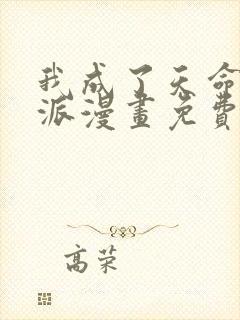 我成了天命
派漫畫免費
高荣